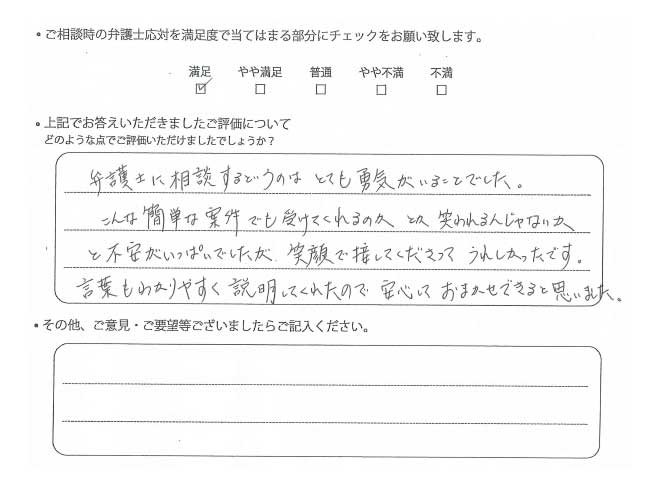 ・ご相談時の弁護士応対を満足度で当てはまる部分にチェックをお願い致します。
満足 やや満足 普通 やや不満 不満
☑ □ □ □ □
・上記でお答えいただきましたご評価について
どのような点でご評価いただけましたでしょうか？
弁護士に相談するというのは とても勇気がいることでした。
こんな簡単な案件でも受けてくれるのか とか 笑われるんじゃないか
と不安がいっぱいでしたが、笑顔で接してくださって うれしかったです。
言葉もわかりやすく説明してくれたので 安心して おまかせできると思いました。
・その他、ご意見・ご要望等ございましたらご記入ください。